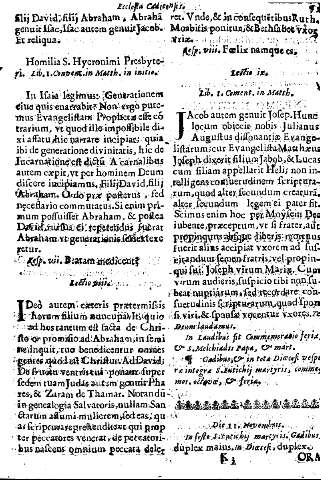 Ecclesiæ Gaditanensis.
filij David, filij Abraham. Abrahã
genuit Isac, Isac autem genuit Jacob.
Et reliqua.
Homilia S. Hyeronimi Presbyte-
ri. Lib. 1. Coment. in Matth. in initio.
In Isaia legimus: Generationem
eius quis enarrabit? Non ergo pute-
mus Evangelistam Prophetæ esse cõ
trarium, ut quod ille impossibile di-
xit affatu, hic narrare incipiat: quia
ibi de generatione divinitatis, hic de
Incarnatione est dictũ. A carnalibus
autem cæpit, ut per hominem Deum
discere incipiamus, Filij David, filij
Abraham. Ordo præposterus, sed
necessario commutatus. Si enim pri-
mum posuisset Abraham, & postea
David, rursus ei repetendus fuerat
Abraham ut generationis series texe
retur.
Resp. vii. Beatam me dicent
Lectio viii.
Ideo autem cæteris prætermissis
horum filium nuncupavit, quia
ad hos tantum est facta de Chri-
sto promissio ad Abraham, in semi
ne, inquit, tuo benedicentur omnes
gentes, quod est Christus. Ad David:
De fructu ventris tui ponam super
sedem tuam. Judas autem genuit Pha
res, & Zaram de Thamar. Notandũ
in genealogia Salvatoris, nullam San-
ctarum assumi mulierem, sed eas, qu
as scriptura reprehendit, ut qui prop
ter peccatores venerat, de peccatori-
bus nascens omnium peccata dele-
ret. Unde, & in consequentibus Ruth,
Moabitis ponitur, & Bethsabee uxor
Vriæ.
Resp. viii. Fœlix namque es.
Lectio ix.
Lib. 1. Coment. in Matth.
Jacob autem genuit Joseph. Hunc
locum objecit nobis Julianus
Augustus dissonantiæ Evange-
listarum: cur Evangelista Matthæus
Joseph dixerit filium Jacob, & Lucas
eum filium appellarit Heli; non in-
telligens consuetudinem scriptura-
rum, quod alter, secundum naturam,
alter, secundum legem ei pater sit.
Scimus enim hoc per Moysem Deo
iubente, præceptum, ut si frater, aut
propinquus absque liberis mortuus
fuerit, alius accipiat uxorem ad sus-
citandum semen fratris, vel propin-
qui sui. Joseph virum Mariæ. Cum
virum audieris, suspicio tibi non su-
beat nuptiarum, sed recordare con-
suetudinis scripturarum, quod spon-
si viri, & sponsæ vocentur uxores.
Deum laudamus.
In Laudibus fit Commemoratio feriæ,
& S. Melchiadis Papæ, & mart.
¶ Gadibus, & in tota Diœcesi vespe-
ræ integræ S. Eutichij martyris, comme-
mor. octavæ, & feriæ.
Die 11.
In festo S. Eutichij martyris. Gadibus
duplex maius, in Diœcesi, duplex.
F 2 ORA